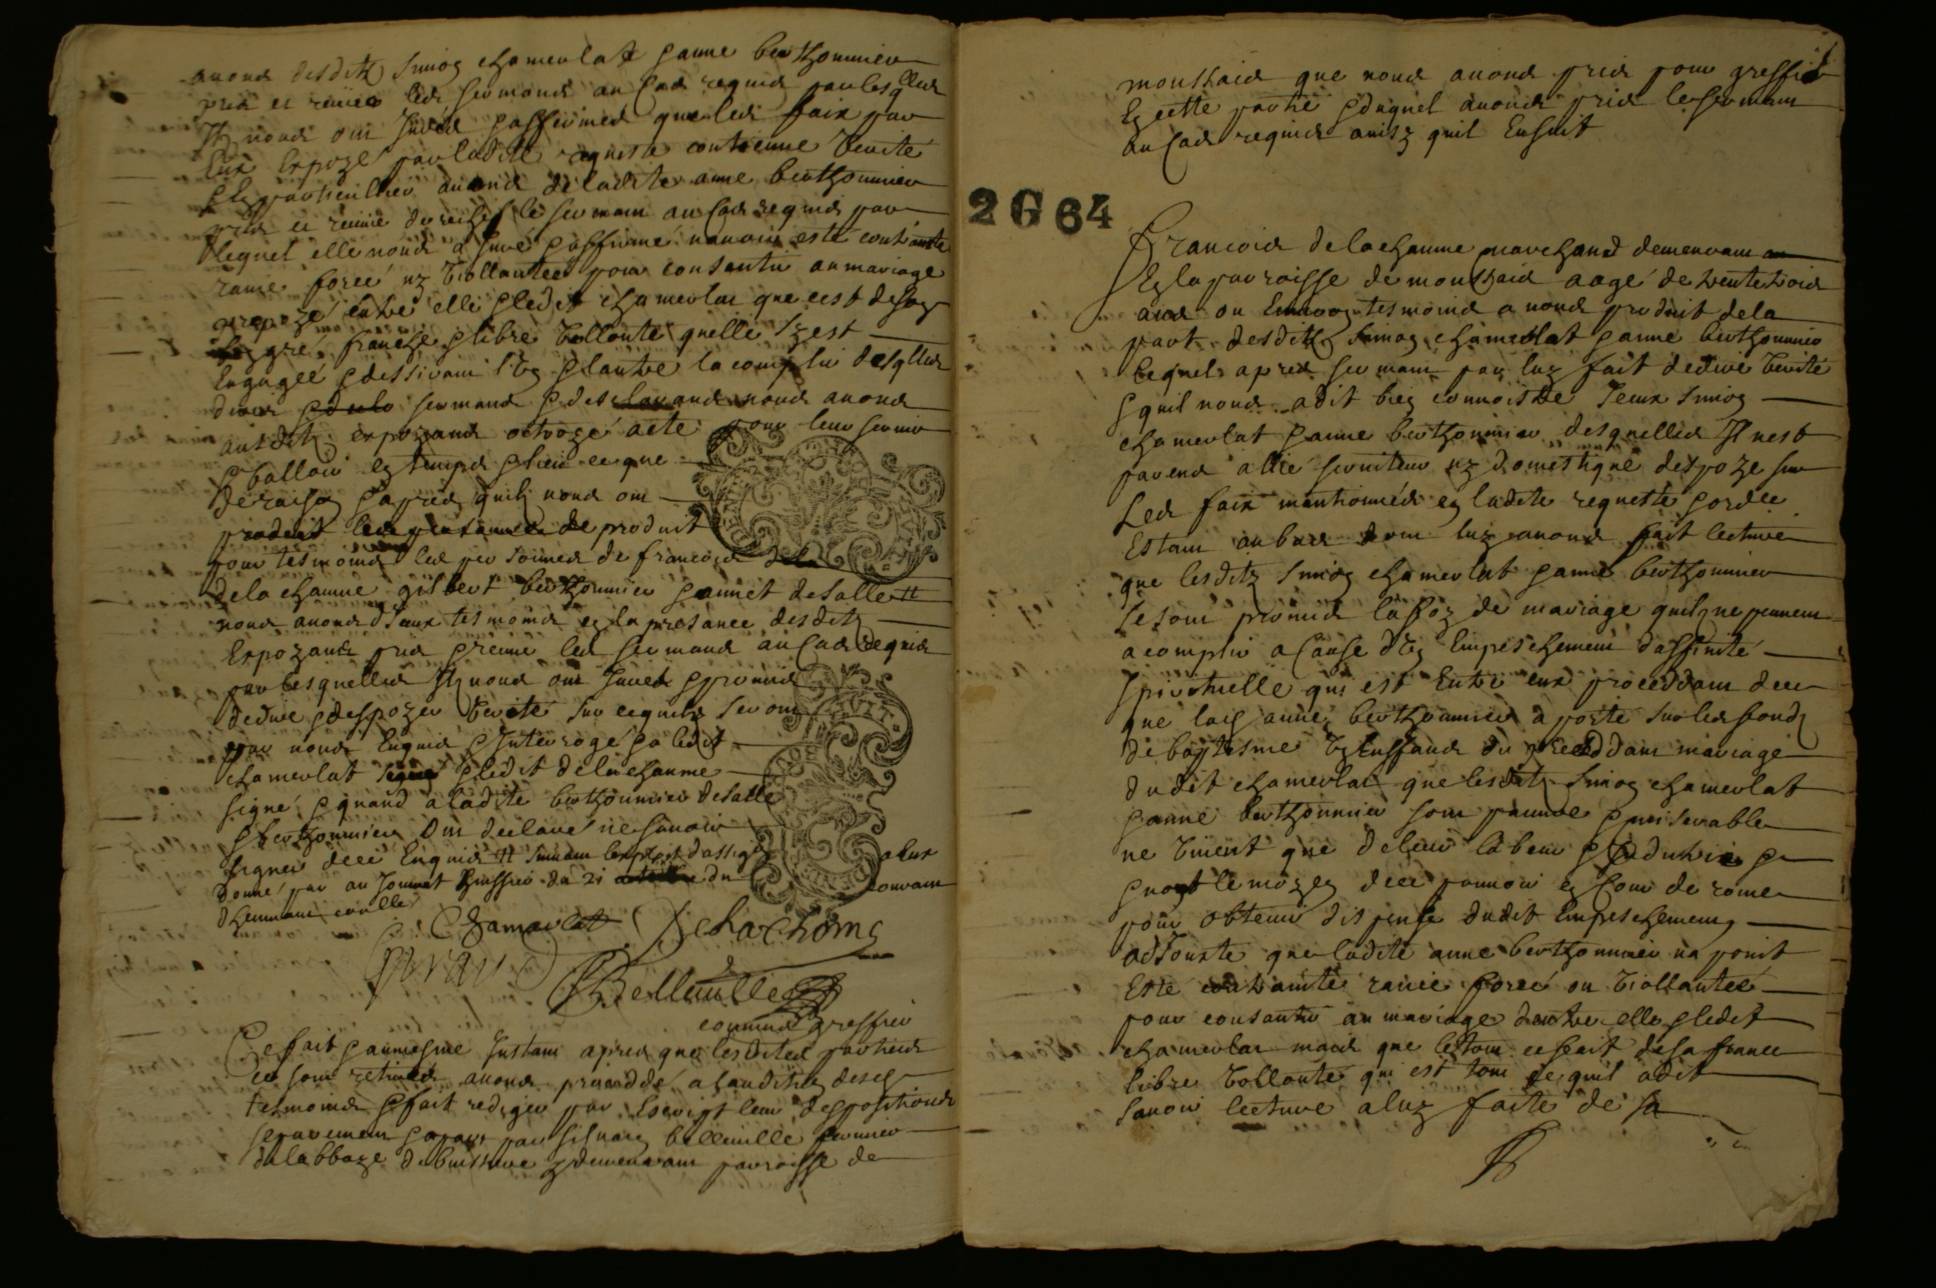 auons desditz Simon chamerlat & anne berthonnier
pris et receu les sermans au cas requis par lesquelz
Ilz nous ont Juré & affirmé que les faix par
Eux Expozé par ladite requeste contienne verité
& En particullier auons de ladite anne berthonnier
pris et receu derechef le serman au cas requis par
lequel elle nous a Juré & affirmé nauoir esté contrainte
rauie forcé ny viollantée pour consantir au mariage
propozé entre elle & ledit chamerlat que cest de son
bon gré franche & libre vollonté quelle sy est
Engagée & dessirant l'un & lautre lacomplir desquelz
dires & desclarans nous auons
ausditz expozans octroyé acte pour leur seruir
& valloir en temps & lieu ce que
de raison & apres quilz nous ont
produit
pour tesmoins les personnes de francois
delachaume gilbert berthonnier & annet desalle
nous auons d'Iceux tesmoins en la presance desditz
Expozans pris & receu les sermans au cas requis
par lesquelles Ilz nous ont Juré & promis
de dire & despozer verité sur ce quilz seront
par nous Enquis & Interogé & a ledit
chamerlat signé & ledit delachaume
signé & quand a ladite berthonnier desalle
& berthonnier Ont declaré ne sauoir
signer dece Enquis suiuant lexploit dassignation
donné par Jonnat huissier du 21 du
Chamerlat Delachome
Belleuille
commis greffier
Ce fait & aumesme Instant apres que lesdites parties
ce sont retirées auons proceddé a lauditon desdits
tesmoins & fait rediger par Escript leur despositions
separement & apart par Siluain belleuille fermier
de labbaye & demeurant parroisse de
monthaid que nous auons pris pour greffier
En cette partie & duquel auons pris le serman
au cas requis ainsy quil Ensuit
2 G 64
Francois delachaume marchand demeurant au
En la parroisse de monthaid aagé de trente trois
ans ou Enuiron tesmoins a nous produit dela
part desditz Simon chamerlat & anne berthonnier
lequel apres serman par luy fait de dire verité
& quil nous a dit bien connoistre Iceux Simon
chamerlat & anne berthonnier desquelles Il nest
parend allié seruiteur ny domestique despoze sur
Les faix mantionnés en ladite requeste & ordce
Estant aubas dont luy auons fait lecture
que lesditz Simon chamerlat & anne berthonnier
se sont promis la foy de mariage quilz ne peuuent
acomplir a Cause d'un Empeschement daffinité
spirituelle qui est Entre eux proceddant de ce
que lad anne berthonnier a porté sur les fondz
de baptesme Un Enffand du preceddant mariage
dudit chamerlat que lesditz Simon chamerlat
& anne berthonnier sont pauure & miserable
ne viuent que de leur labeur & Industrie &
& nont le moyen de ce pouruoir en Cour de rome
pour obtenir dispense dudit Empeschement
adjouste que ladite anne berthonnier na point
Esté contrainte rauie forcé ou viollantée
pour consantir au mariage dentre elle & ledit
chamerlat mais que cest de sa franche
libre vollonté qui est tout ce quil a dit
sauoir lecture a luy faite de sa